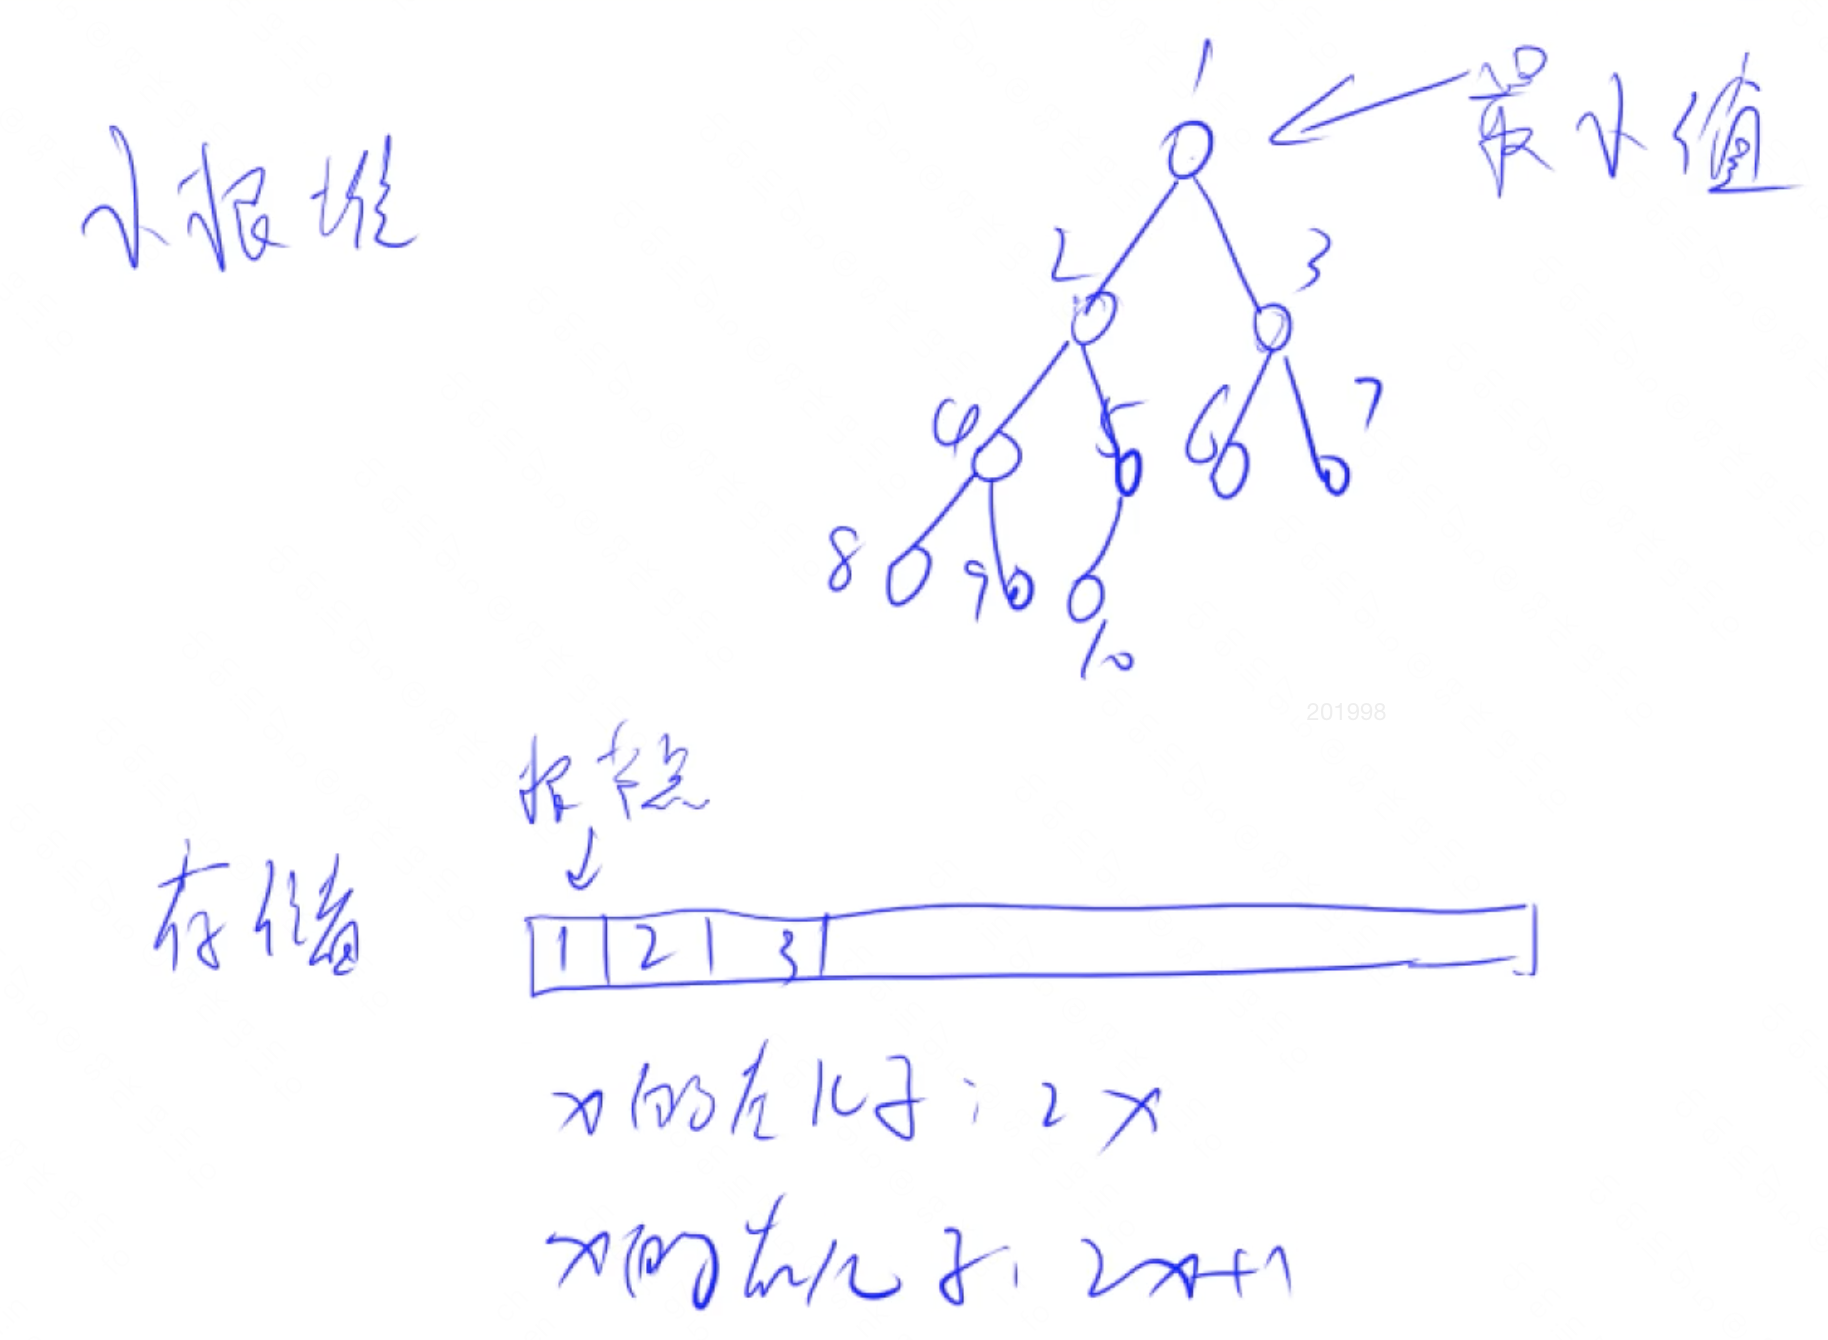 1
最小值
小根堆
2 3
4 5 6 7
8 9
10
201998
根节点
存储
1 2 3
x的左儿子: 2x
x的右儿子: 2x+1